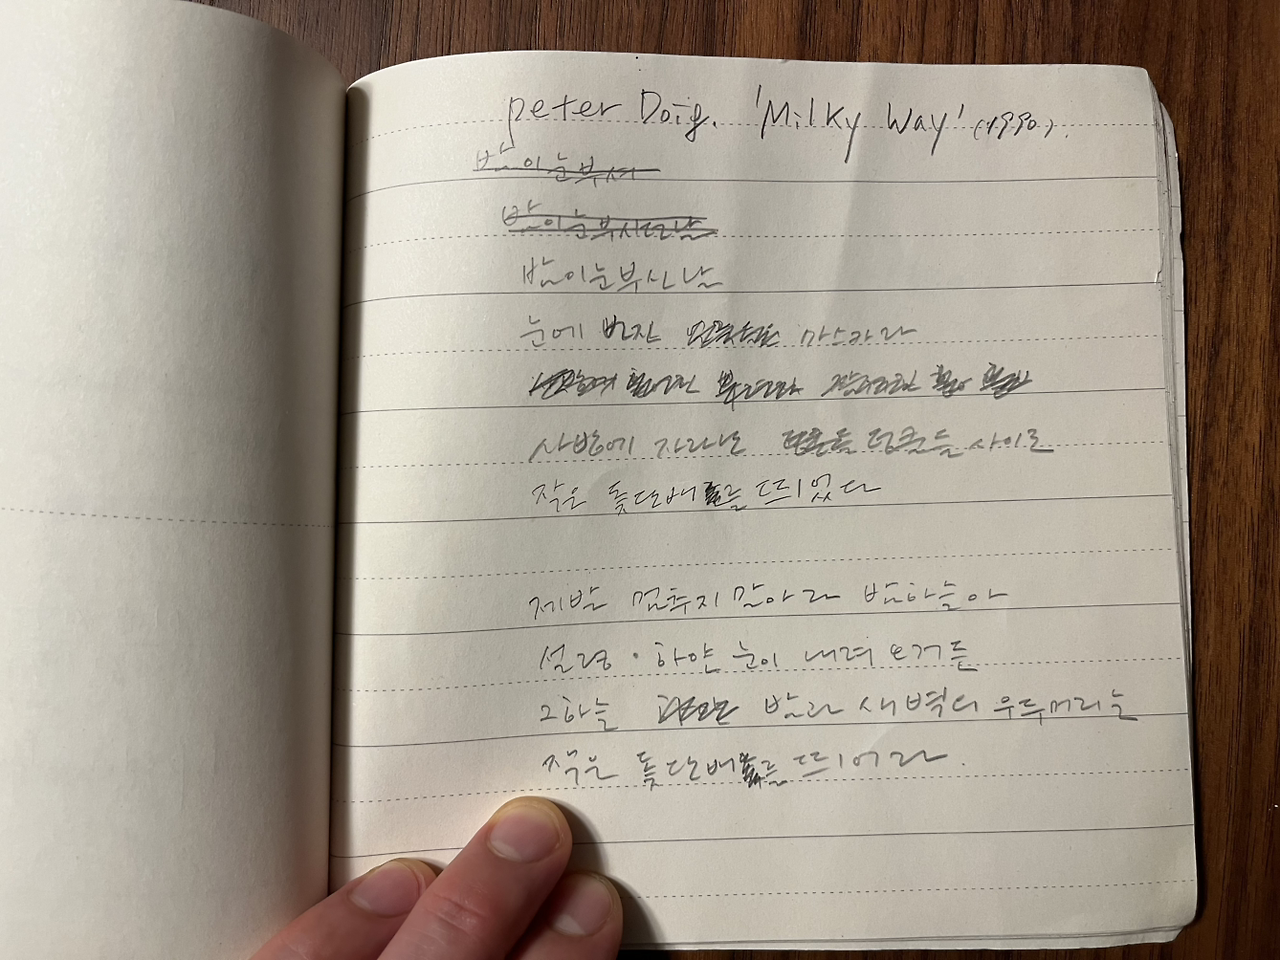 peter Doig. 'Milky Way' (1990).
밤이눈부셔
밤이눈부시던날
밤이눈부신날
눈에 번진 마스카라
사방에 자라난 덩굴들 사이로
작은 돛단배를 띄었다
제발 멈추지 말아라 밤하늘아
설령 · 하얀 눈이 내려 오거든
그하늘 밤과 새벽녘 우두머리는
작은 돛단배를 띄어라.